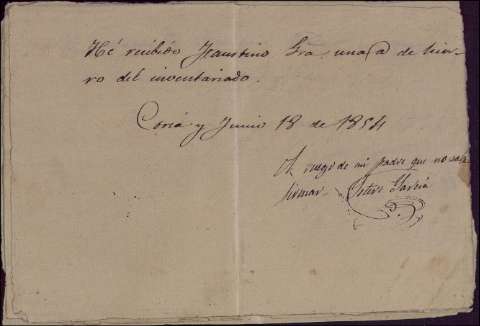 Hé recibido Faustino Gra. una @ de hier-
ro del inventariado.
Coria y Junio 18 de 1854
A ruego de mi padre que no sabe
firmar - García